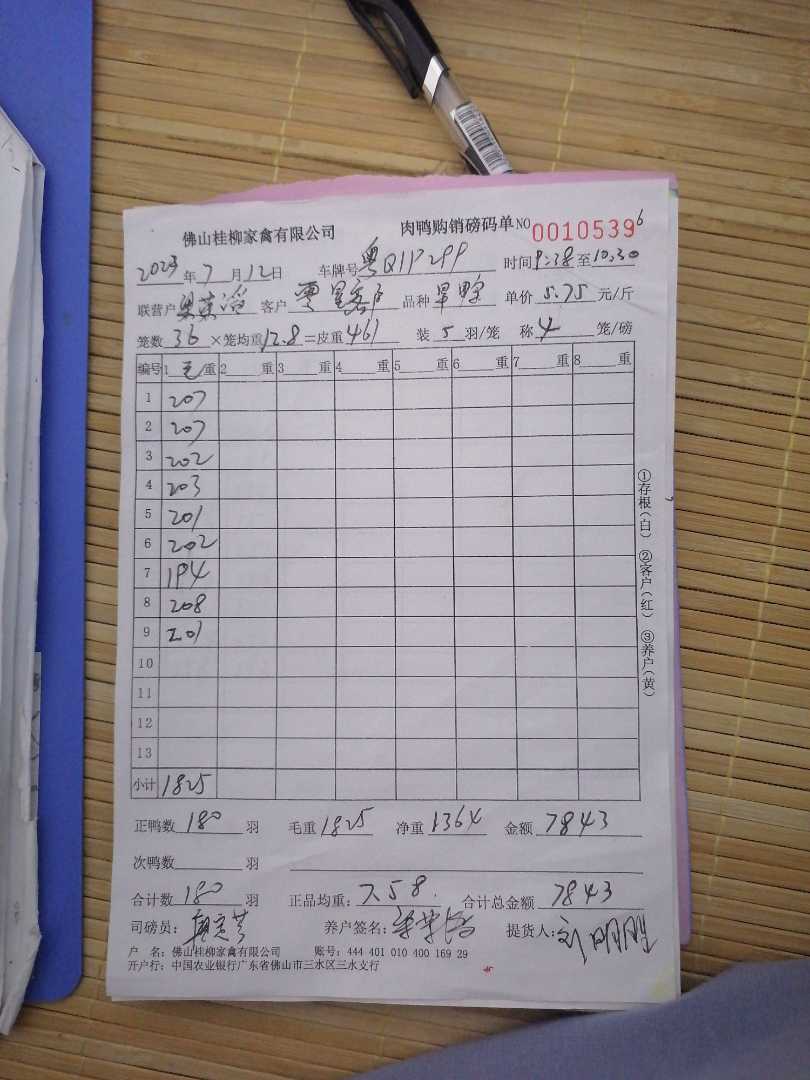 佛山桂柳家禽有限公司 肉鸭购销磅码单 NO 0010539 6
2023年7月12日 车牌号粤Q1P299 时间9:38至10:30
联营户 客户零星客户 品种旱鸭 单价5.75元/斤
笼数36×笼均重12.8=皮重461 装5羽/笼 称4笼/磅
编号 1毛重 2重 3重 4重 5重 6重 7重 8重
1 207
2 207
3 202
4 203
5 201
6 202
7 194
8 208
9 201
10
11
12
13
小计 1825
①存根(白) ②客户(红) ③养户(黄)
正鸭数180羽 毛重1825 净重1364 金额7843
次鸭数羽
合计数180羽 正品均重:7.58 合计总金额7843
司磅员: 养户签名: 提货人:刘明胜
户 名:佛山桂柳家禽有限公司 账号:444 401 010 400 169 29
开户行:中国农业银行广东省佛山市三水区三水支行